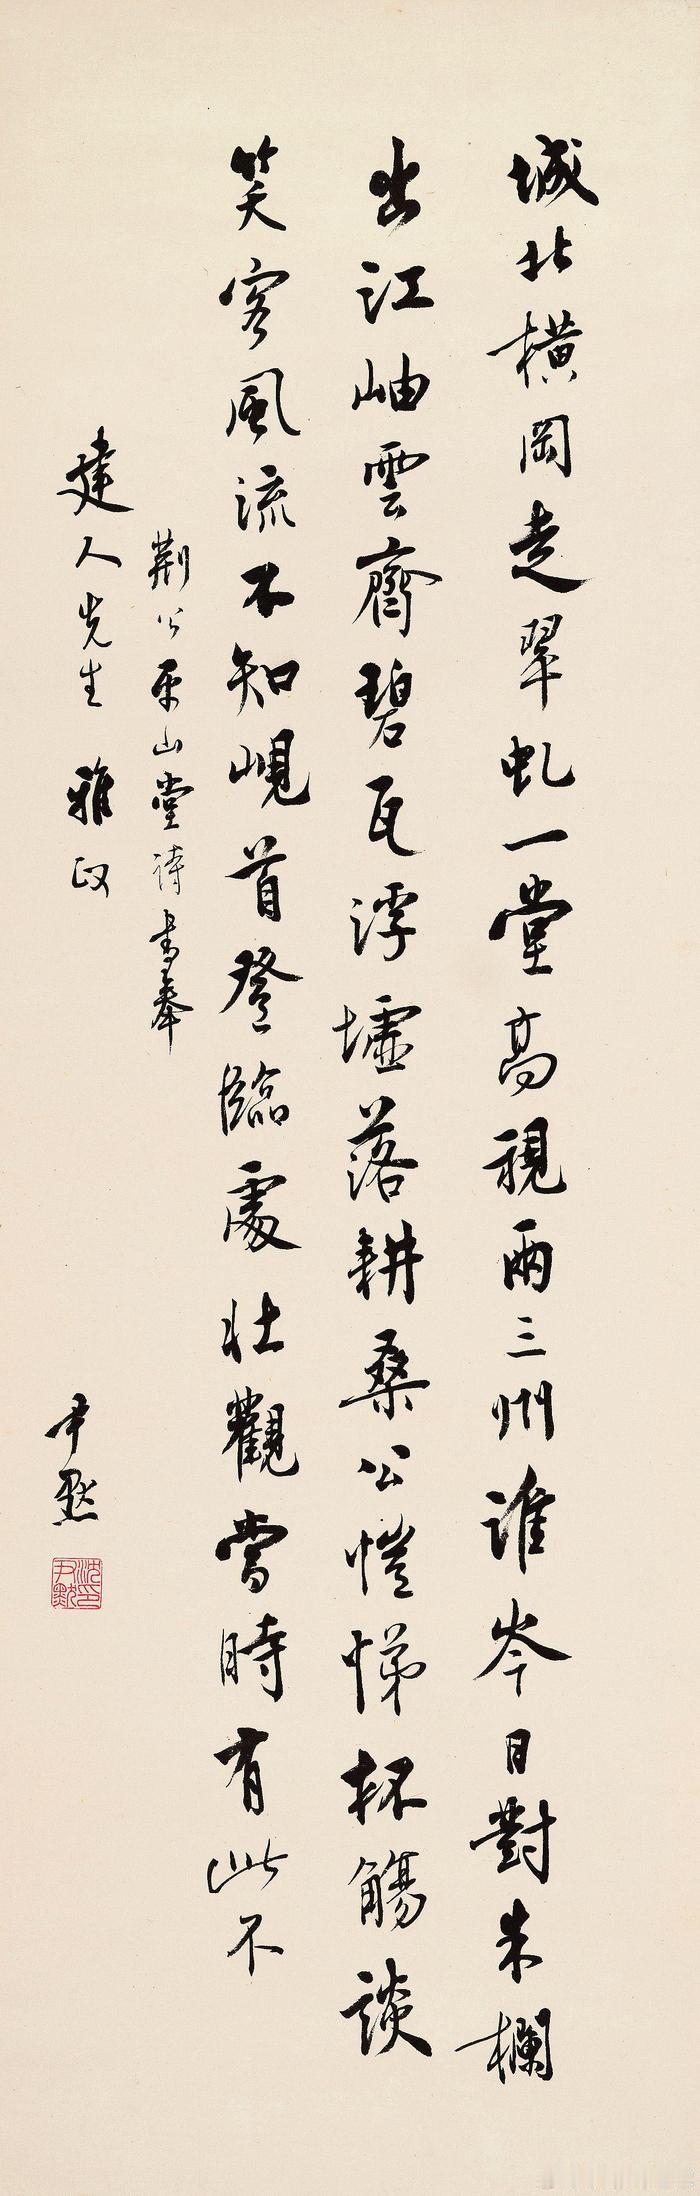 城北橫岡走翠虬一堂高視兩三州淮岑日對朱欄
出江岫雲齊碧瓦浮墟落耕桑公愷悌杯觴談
笑客風流不知峴首登臨處壯觀當時有此不
荊公平山堂詩書奉
建人先生 雅政
尹默
沈尹默印